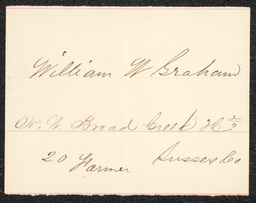 William W Graham
N. W. Broad Creek Hd
20 Farmer Sussex Co